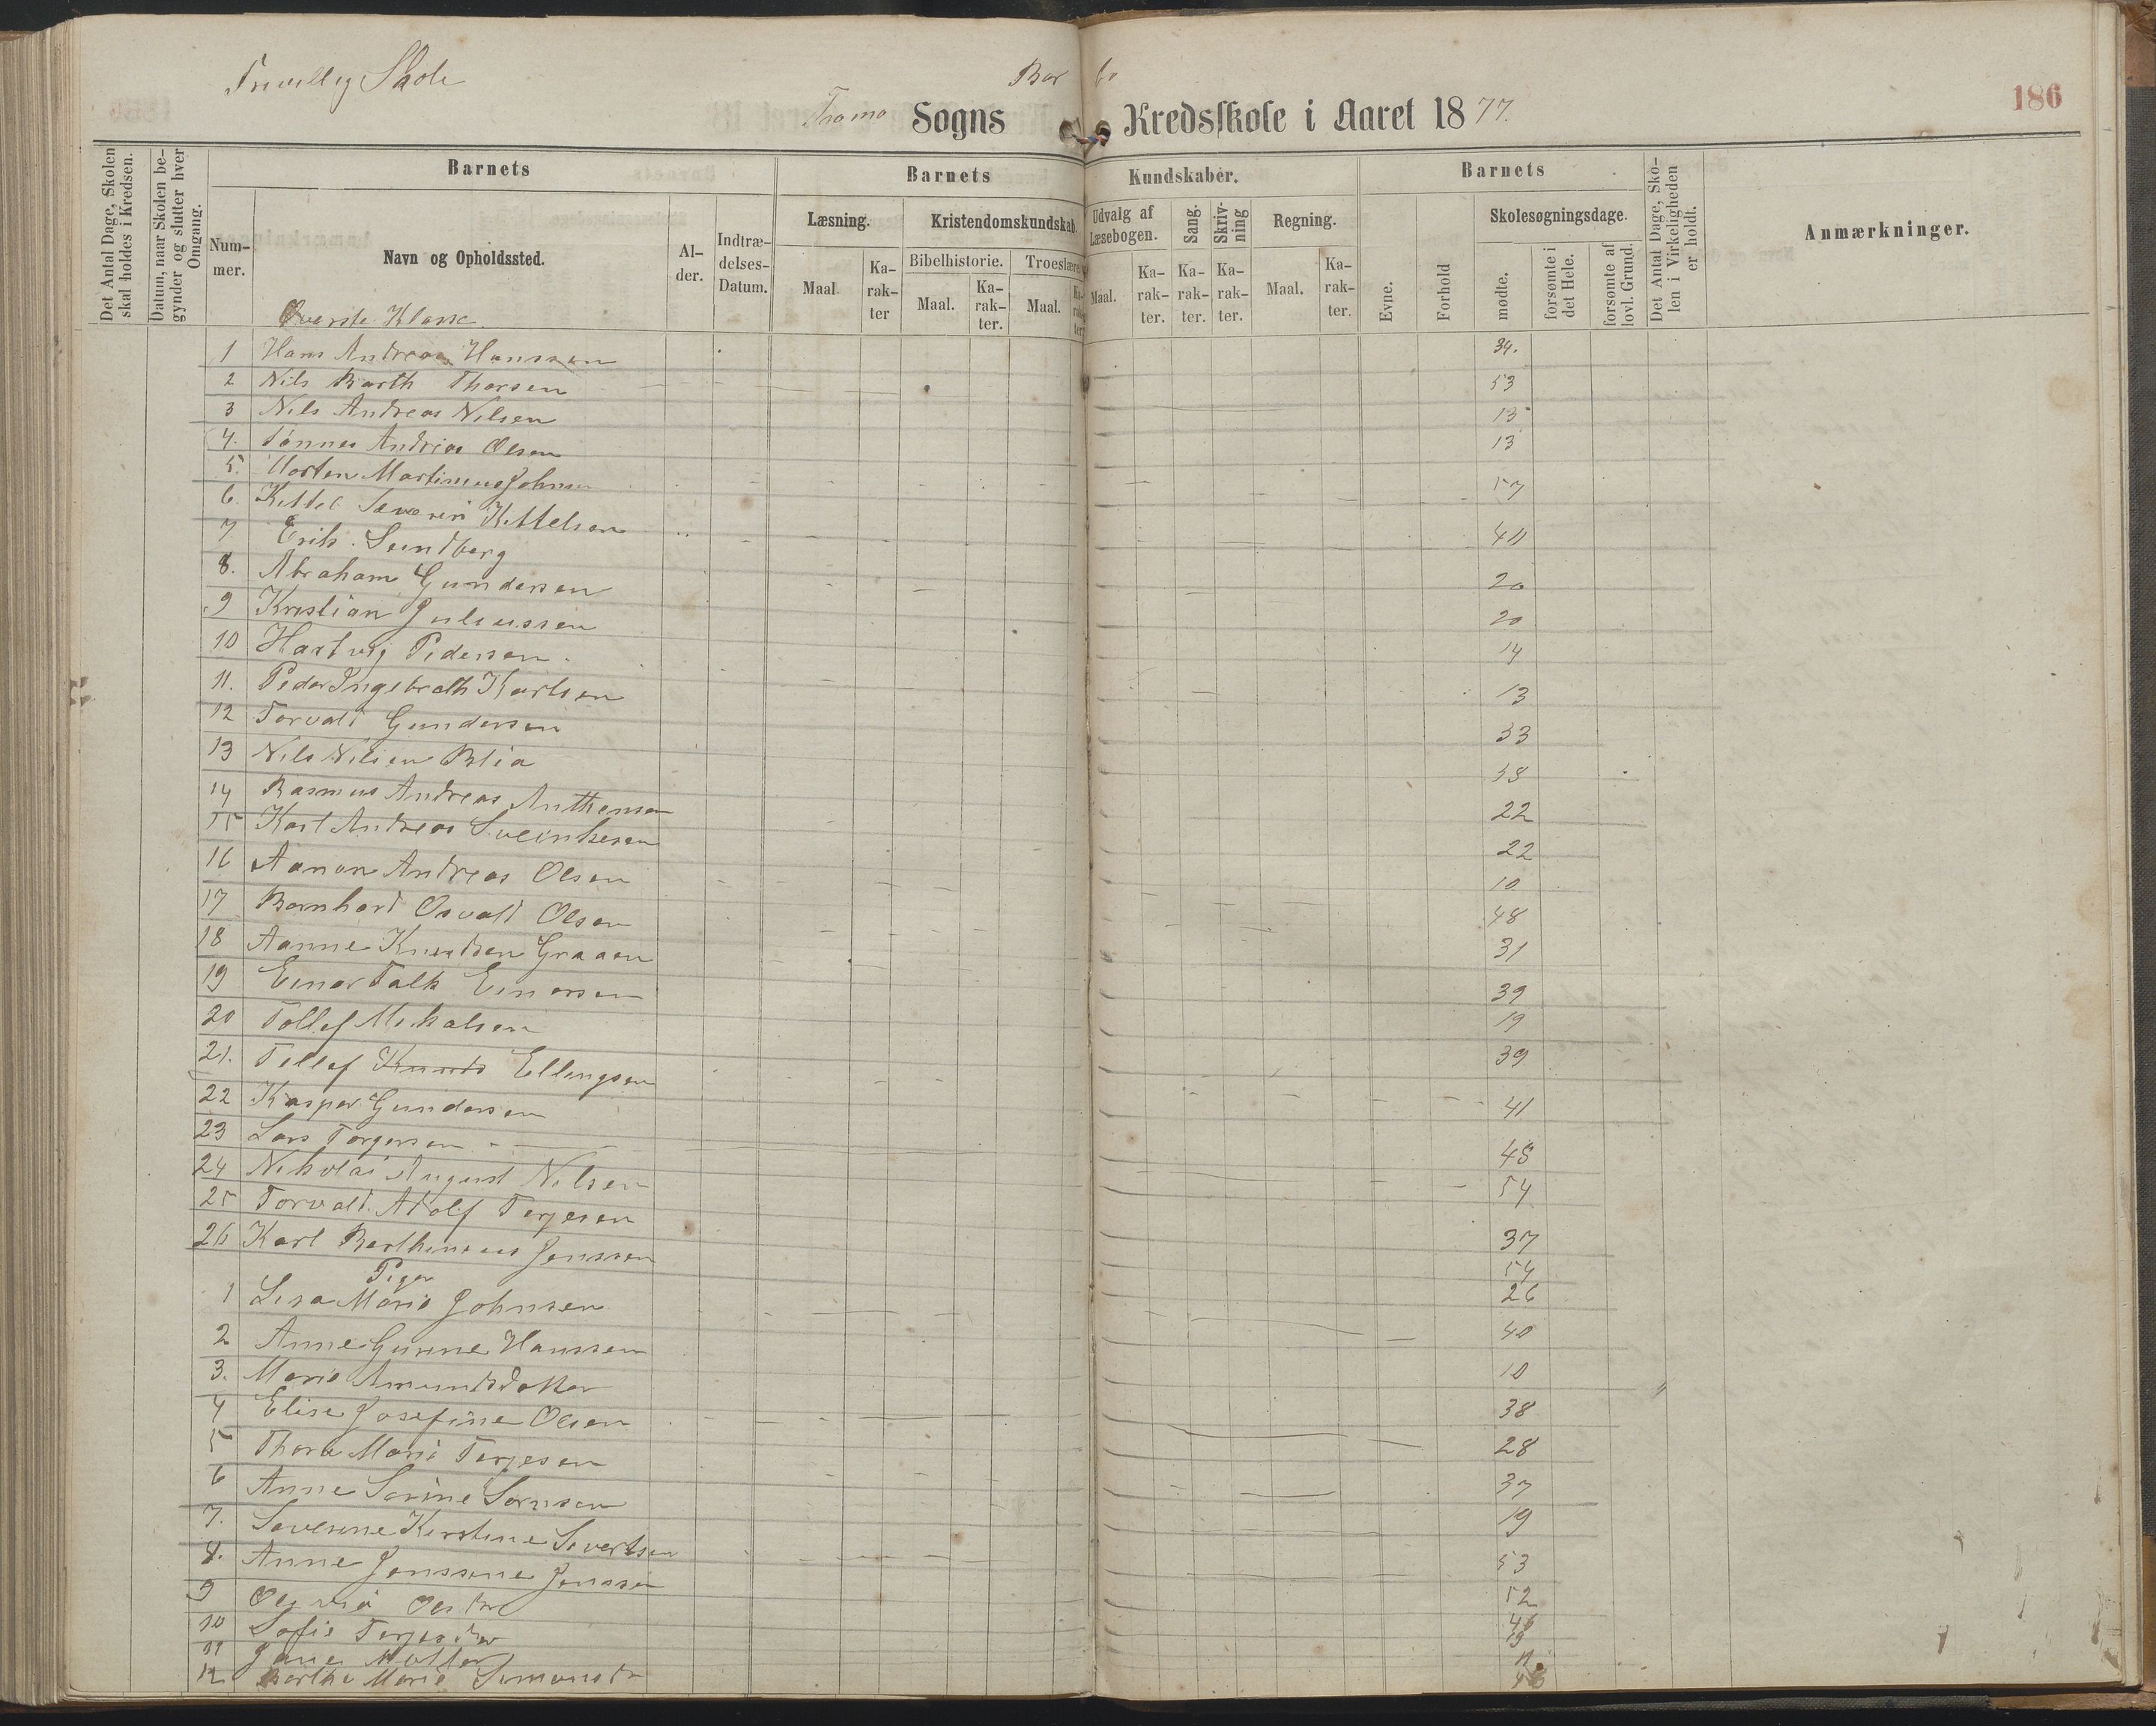 Frivillig Skole
Bar bo
186
Tromø Sogns Kredsskole i Aaret 1877.
Det Antal Dage, Skolen skal holdes i Kredsen.
Datum, naar Skolen begynder og slutter hver Omgang.
Barnets
Nummer.
Navn og Opholdssted.
Alder.
Indtrædelses-Datum.
Barnets Kundskaber.
Læsning.
Maal
Karakter
Kristendomskundskab.
Bibelhistorie.
Maal.
Karakter.
Troeslære
Maal.
Karakter.
Udvalg af Læsebogen.
Maal.
Karakter.
Sang.
Karakter.
Skrivning
Karakter.
Regning.
Maal.
Karakter.
Barnets
Evne.
Forhold
Skolesøgningsdage.
mødte.
forsømte i det Hele.
forsømte af lovl. Grund.
Det Antal Dage, Skolen i Virkeligheden er holdt.
Anmærkninger.
Øverste Klasse.
1 Hans Andreas Hanssen 34.
2 Nils Barth Thorsen 53
3 Nils Andreas Nilsen 13
4. Tønnes Andreas Olsen 13
5. Morten Martinius Johnsen 57
6. Kittel Severin Kittelsen
7 Erik Sundberg 40
8. Abraham Gundersen 20
9 Kristian Juliussen 20
10 Hartvig Pedersen 14
11. Peder Ingebreth Karlsen 13
12 Torvald Gundersen 33
13 Nils Nilsen Blia 38
14 Rasmus Andreas Anthonsen 22
15 Karl Andreas Sveinksen 22
16 Aanon Andreas Olsen 10
17 Bernhard Osvald Olsen 48
18 Aanne Knudsen Graaen 31
19 Einar Falk Einarsen 39
20 Tollef Mikalsen 19
21. Tellef Knuds Ellingsen 39
22 Kasper Gundersen 41
23 Lars Torgersen 48
24 Nikolai August Nilsen 54
25 Torvald Adolf Terjesen 37
26 Karl Barthineus Jenssen 54
Piger
1 Lisa Marie Johnsen 26
2 Anne Gurine Hanssen 40
3. Marie Amundsdatter 10
4 Elise Josefine Olsen 38
5 Thora Marie Terjesen 28
6 Anne Sørine Sørnsen 37
7. Severine Kirstine Sivertsen 19
8. Anne Jenssine Jenssen 53
9 52
10 Sofie Terjesdtr
11
12 Berthe Marie Simonsdtr